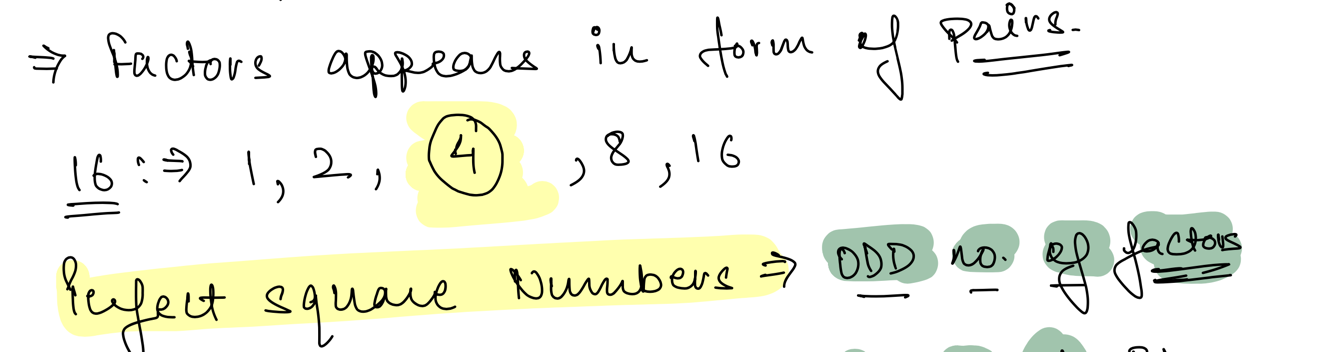 ⇒ factors appears in form of pairs.
16 :⇒ 1, 2, 4, 8, 16
Perfect square Numbers ⇒ ODD no. of factors